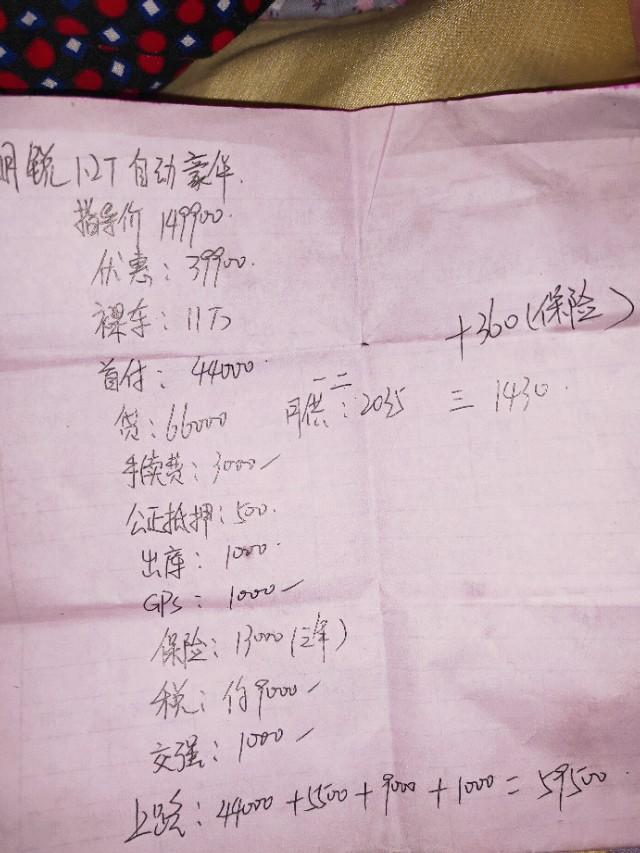 明锐 1.2T 自动豪华.
指导价 149900.
优惠: 39900.
裸车: 11万
+360(保险)
首付: 44000.
一 二
贷: 66000 月供: 2035 三 1430.
手续费: 3000
公正抵押: 500.
出库: 1000.
GPS: 1000
保险: 13000 (三年)
税: 约9000
交强: 1000
上路: 44000 + 5500 + 9000 + 1000 = 59500.